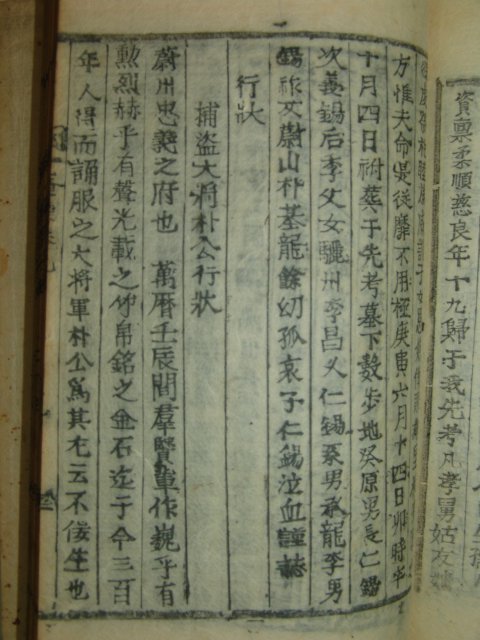 資稟柔順慈良年十九歸于我先考凡孝舅姑友
方惟夫命是從靡不用極庚寅六月十四日卯時卒
十月四日祔葬于先考墓下數步地癸原男長仁錫
次義錫后李父女驪州李昌久仁錫系男承龍李男
錫祚女蔚山朴基龍餘幼孤哀子仁錫泣血謹誌
行狀
捕盜大將朴公行狀
蔚州忠義之府也 萬曆壬辰間羣賢輩作巍乎有
勳烈赫乎有聲光載之竹帛銘之金石迄于今三百
年人得而誦服之大將軍朴公爲其尤云不佞生也